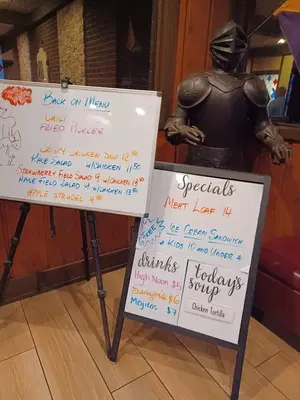 Back on Menu
Chili
Fried Pickles
Crispy Chicken Dip 12 50
Kale Salad w/chicken 11 50
Strawberry Field Salad 9 w/chicken 13 50
Apple Field Salad 9 w/chicken 13 50
Apple Strudel 4 50
Specials
Meat Loaf 14
Ice Cream Sandwich
Kids 10 and Under 4
drinks
High Noon $5
Sangria $6
Mojitos $7
today's
soup
Chicken Tortilla